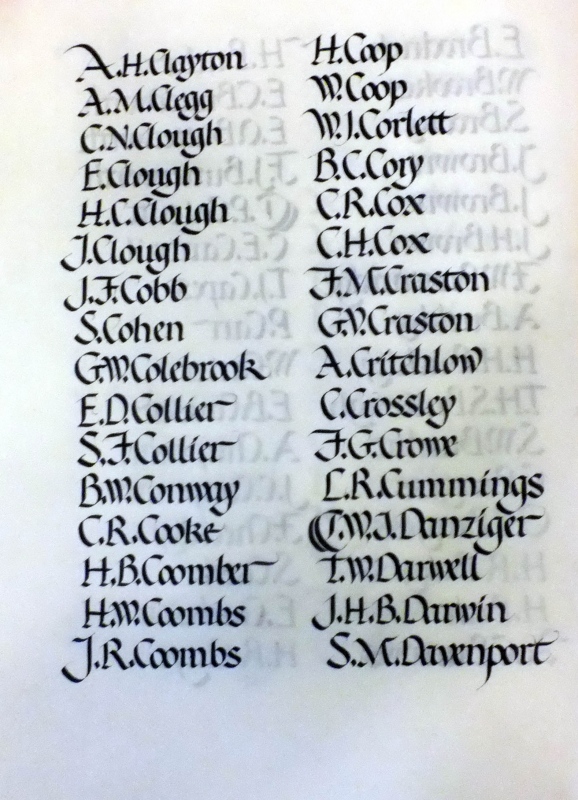 A.H.Clayton
A.M.Clegg
C.N.Clough
E.Clough
H.C.Clough
J.Clough
J.F.Cobb
S.Cohen
G.W.Colebrook
E.D.Collier
S.F.Collier
B.W.Conway
C.R.Cooke
H.B.Coomber
H.W.Coombs
J.R.Coombs
H.Coop
W.Coop
W.J.Corlett
B.C.Cory
C.R.Cox
C.H.Cox
F.M.Craston
G.V.Craston
A.Critchlow
C.Crossley
F.G.Crowe
L.R.Cummings
C.W.J.Danziger
T.W.Darwell
J.H.B.Darwin
S.M.Davenport